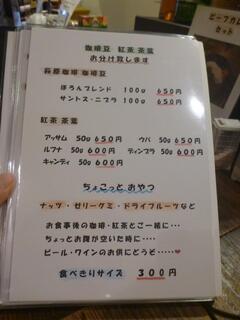 珈琲豆 紅茶 茶葉
お分け致します
萩原珈琲 珈琲豆
ぽろんブレンド 100g 650円
サントス・ニブラ 100g 650円
紅茶 茶葉
アッサム 50g 650円 ウバ 50g 650円
ルフナ 50g 600円 ディンブラ 50g 600円
キャンディ 50g 600円
ちょこっと おやつ
ナッツ・ゼリーケミ・ドライフルーツなど
お食事後の珈琲・紅茶とご一緒に・・・
ちょっとお腹が空いた時に・・・・
ビール・ワインのお供にどうぞ・・・・・♥
食べきりサイズ 300円
ビーフカレー
セット